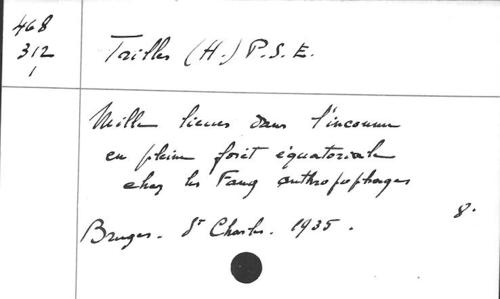 468
312
1
Trilles (H.) P.S.E.
Mille lieues dans l'inconnu
en pleine forêt équatoriale
chez les Fang anthropophages
8.
Bruges. St Charles. 1935.